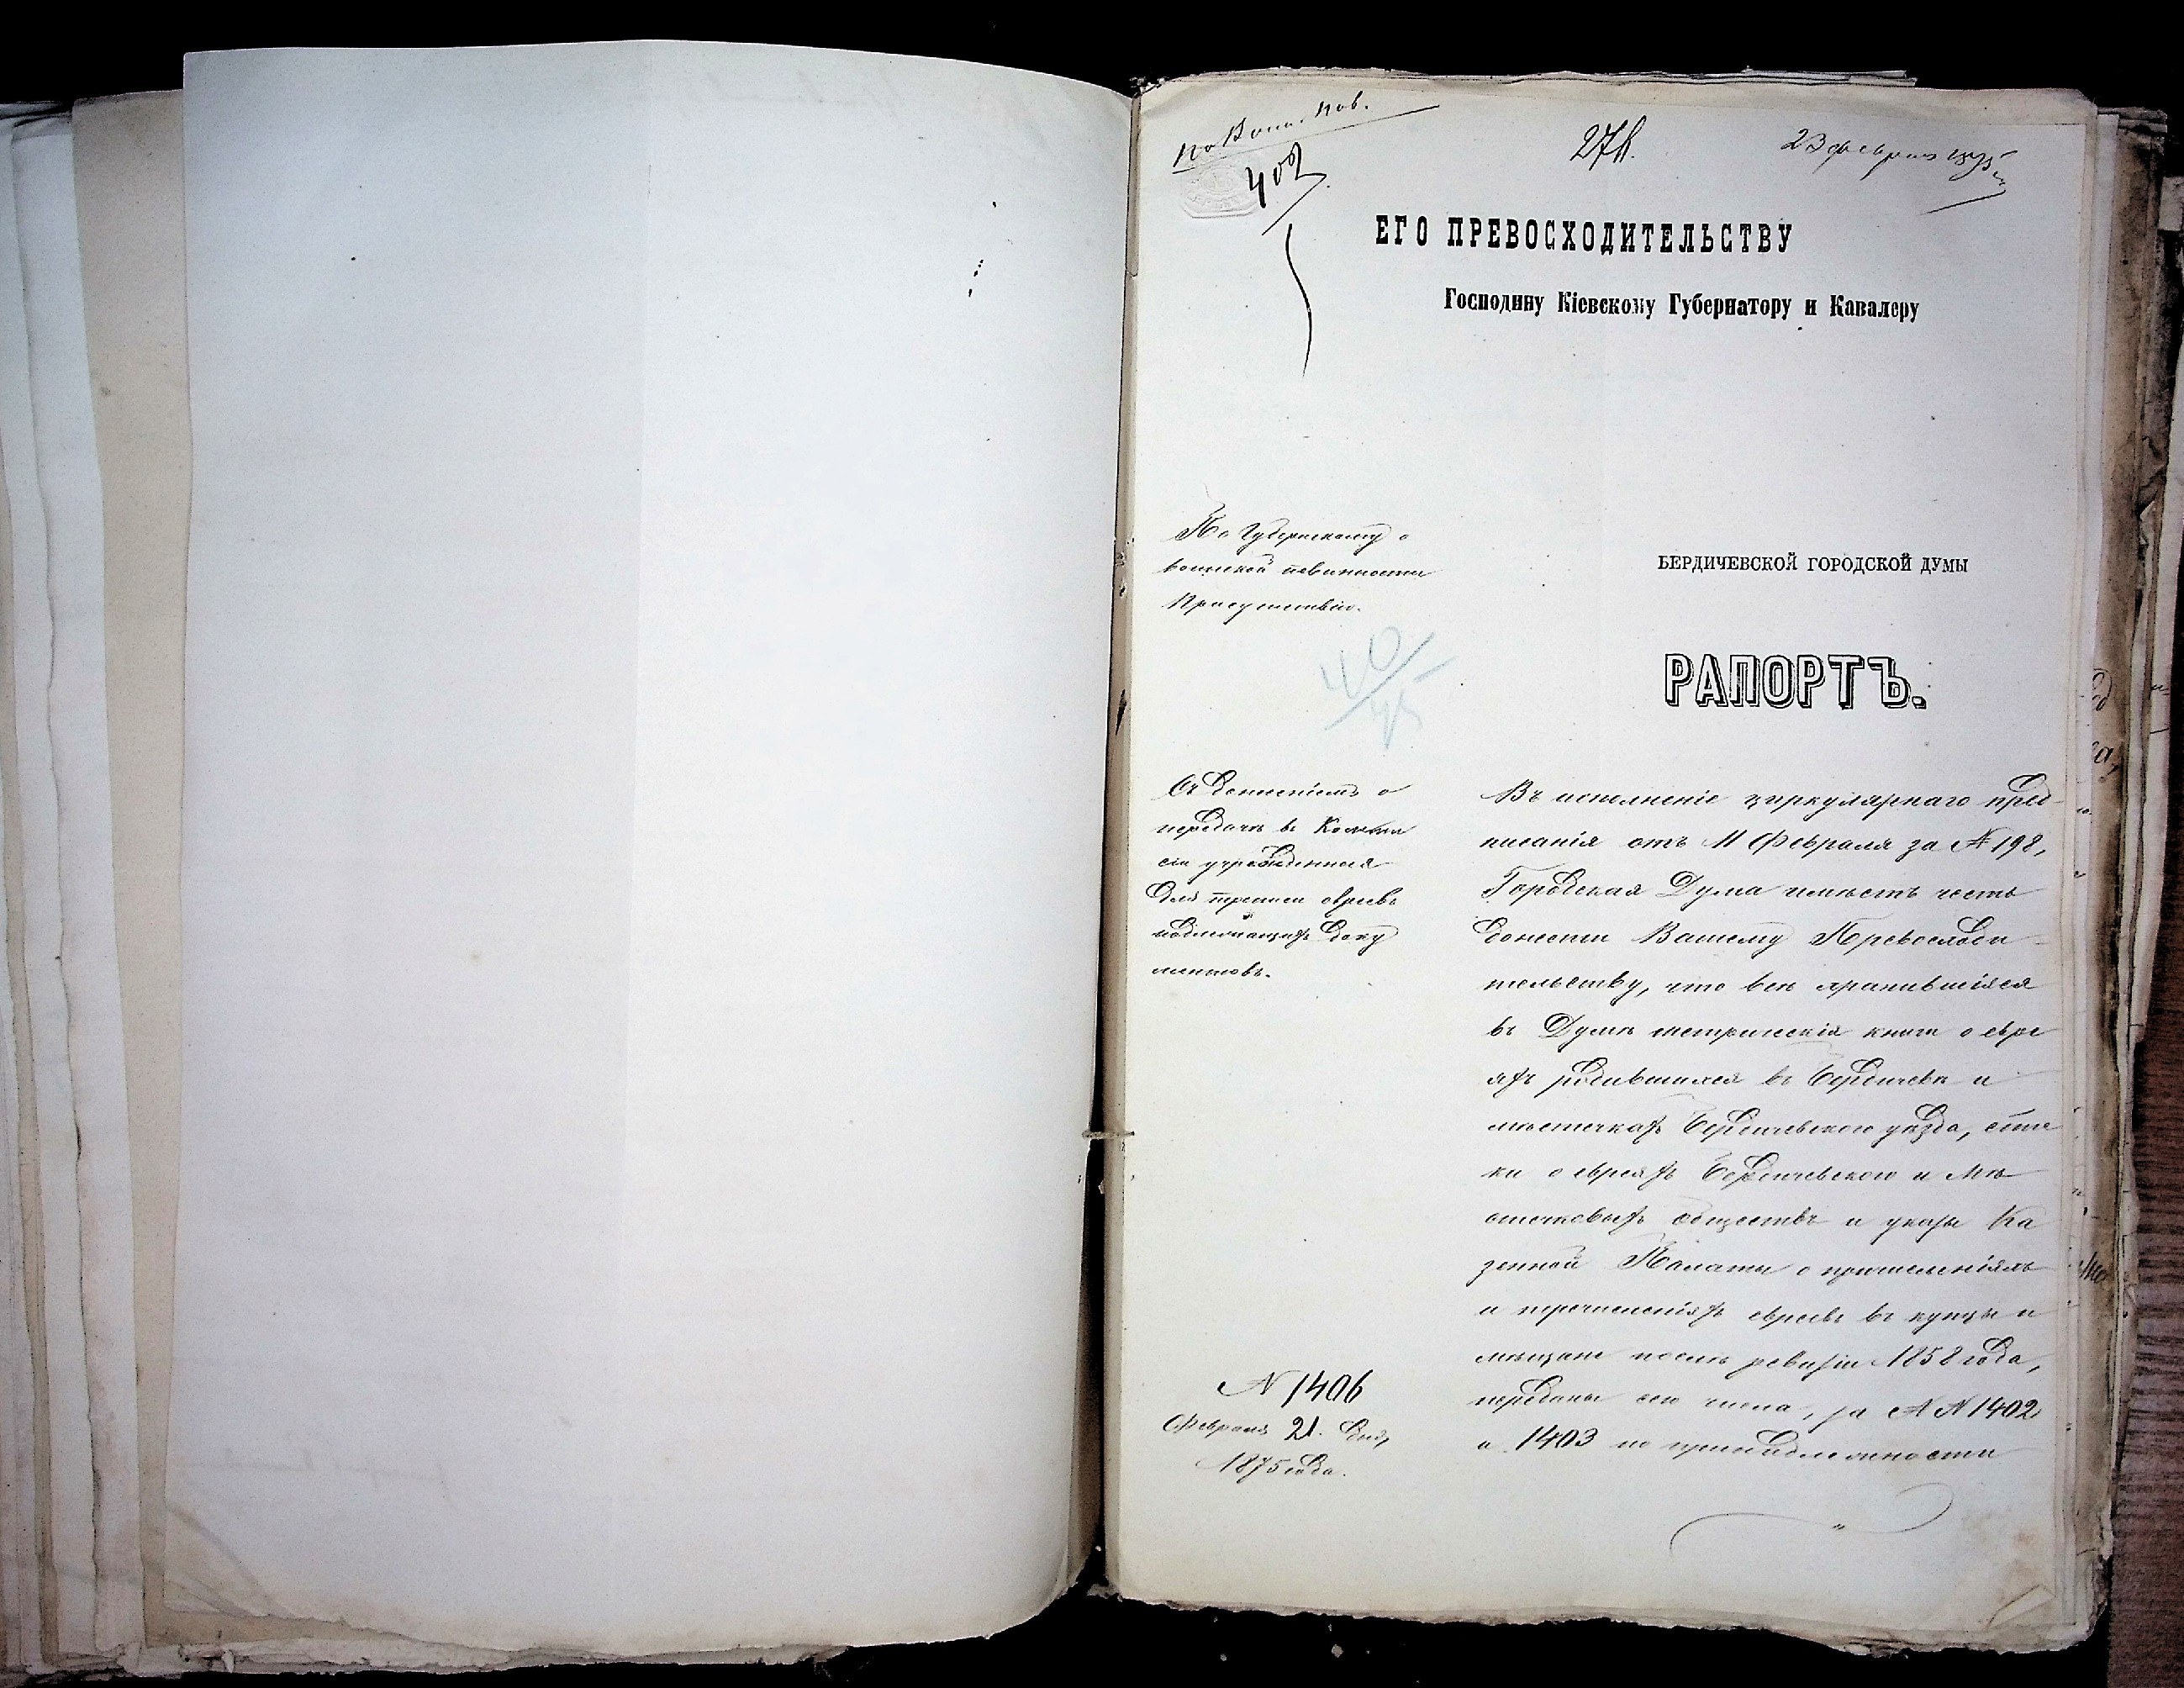 По Воин. Пов.
402
27 ф.
23 февраля 1875 г.
ЕГО ПРЕВОСХОДИТЕЛЬСТВУ
Господину Кіевскому Губернатору и Кавалеру
По Губернскому о
воинской повинности
Присутствію.
БЕРДИЧЕВСКОЙ ГОРОДСКОЙ ДУМЫ
40/75
РАПОРТЪ.
Съ донесеніемъ о
передачѣ въ Комми
сіи учрежденныя
для
евреевъ
подлежащихъ доку
ментовъ.
Въ исполненіе циркулярнаго пред-
писанія отъ 11 Февраля за № 198,
Городская Дума имѣетъ честь
донести Вашему Превосходи-
тельству, что всѣ хранившіяся
въ Думѣ метрическія книги о евре
яхъ родившихся въ Бердичевѣ и
мѣстечкахъ Бердичевскаго уѣзда, спис
ки о евреяхъ Бердичевскаго и Мѣ
стечковыхъ обществъ и указы Ка
зенной Палаты о причисленіяхъ
и перечисленіяхъ евреевъ въ купцы и
мѣщане послѣ ревизіи 1858 года,
переданы сего числа, за №№ 1402
и 1403 по принадлежности
№ 1406
Февраля 21. дня,
1875 года.